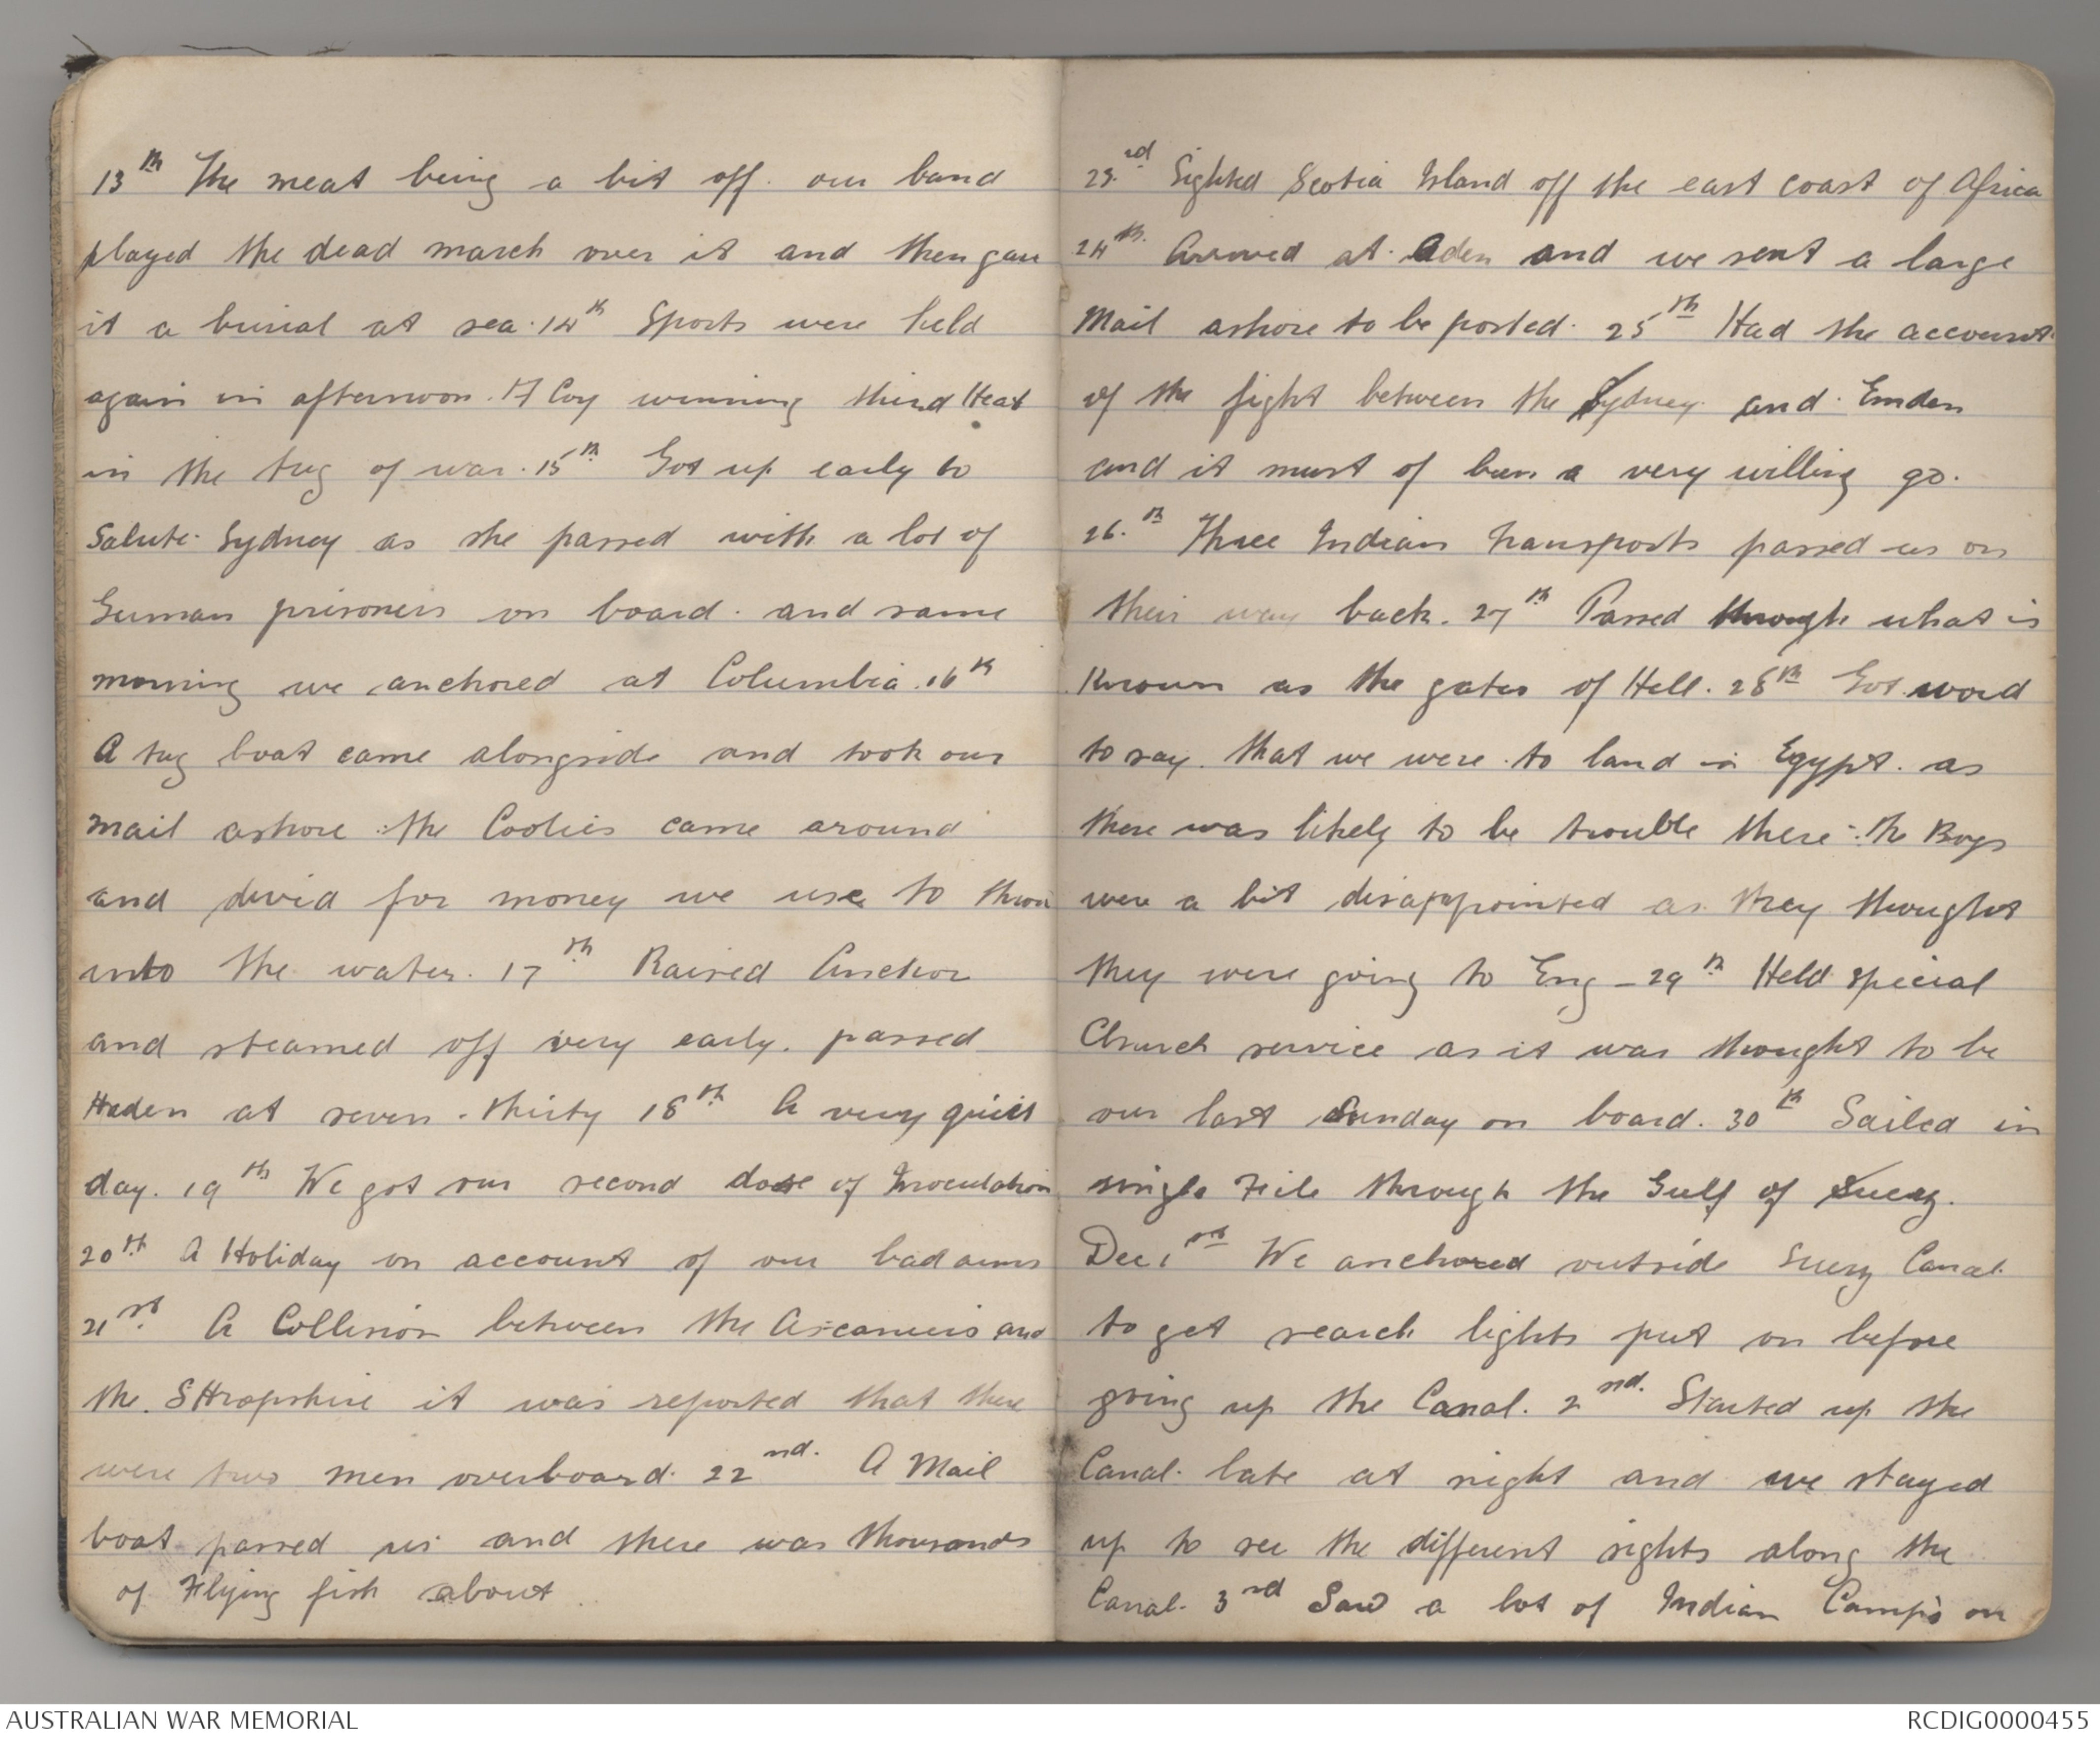 13th The meat being a bit off. our band
played the dead march over it and then gave
it a burial at sea. 14th Sports were held
again in afternoon. H Coy winning third Heat
in the tug of war. 15th Got up early to
Salute. Sydney as she passed with a lot of
German prisoners on board. and same
morning we anchored at Columbia. 16th
A tug boat came alongside and took our
mail ashore. the Coolies came around
and divid for money we use to throw
into the water. 17th Raised Anchor
and steamed off very early. passed
Haden at seven. thirty 18th A very quiet
day. 19th We got our second dose of Inoculation
20th A Holiday on account of our bad arms
21st. A Collision between the Ascanuis and
the. SHropshire it was reported that there
were two men overboard. 22nd. A Mail
boat passed us and there was thousands
of Flying fish about.
23rd Sighted Scotia Island off the east coast of Africa
24th. Arrived at. Aden and we sent a large
Mail ashore to be posted. 25th Had the account
of the fight between the Sydney. and. Emden
and it must of been a very willing go.
26.th Three Indian transports passed us on
their way back. 27th Passed through what is
Known as the gates of Hell. 28th Got word
to say. that we were to land in Egypt. as
there was likely to be trouble there. the Boys
were a bit disappointed as they thought
they were going to Eng - 29th Held special
Church service as it was thought to be
our last Sunday on board. 30th Sailed in
single File through the Gulf of Suez.
Dec 1st We anchored outside Suez Canal.
to get search lights put on before
going up the Canal. 2nd. Started up the
Canal. late at night and we stayed
up to see the different sights along the
Canal. 3rd Saw a lot of Indian Camps on
AUSTRALIAN WAR MEMORIAL
RCDIG0000455